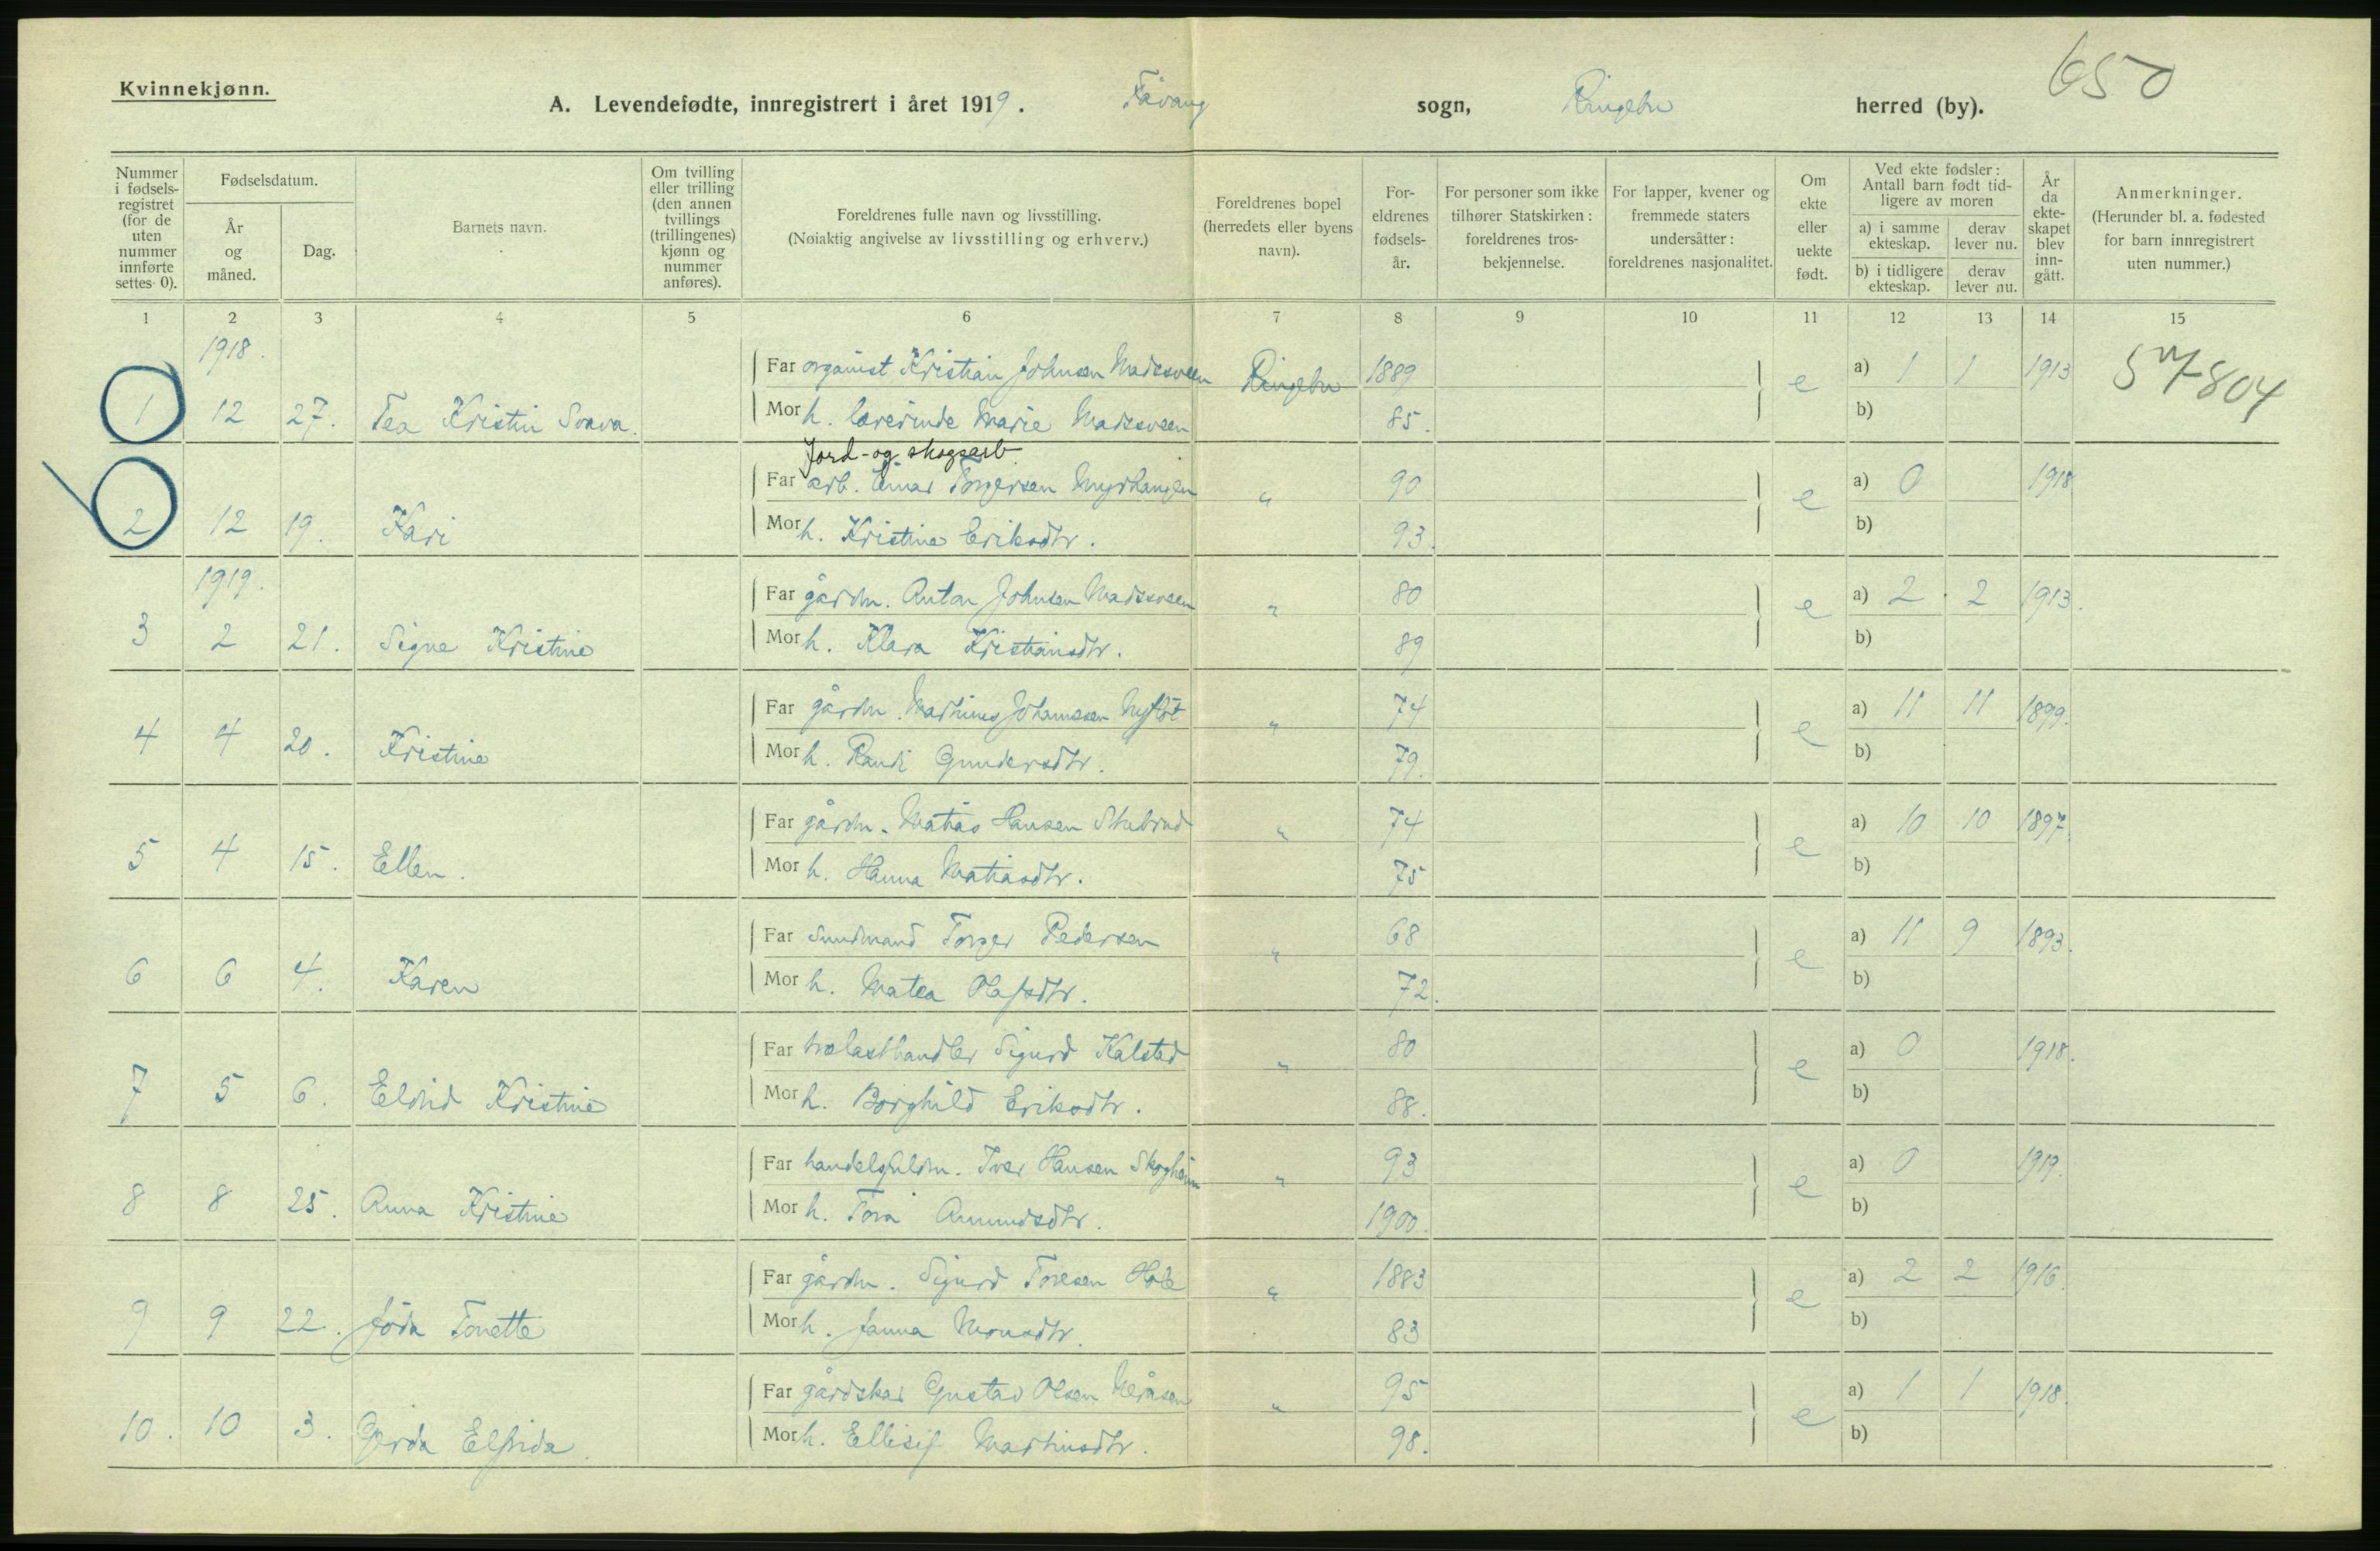 650
Kvinnekjønn.
A. Levendefødte, innregistrert i året 1919. Fåvang sogn, Ringebu herred (by).
Nummer i fødsels-registret (for de uten nummer innførte settes 0).
Fødselsdatum.
År og måned.
Dag.
Barnets navn.
Om tvilling eller trilling (den annen tvillings (trillingenes) kjønn og nummer anføres).
Foreldrenes fulle navn og livsstilling.
(Nøiaktig angivelse av livsstilling og erhverv.)
Foreldrenes bopel (herredets eller byens navn).
For-eldrenes fødsels-år.
For personer som ikke tilhører Statskirken: foreldrenes tros-bekjennelse.
For lapper, kvener og fremmede staters undersåtter: foreldrenes nasjonalitet.
Om ekte eller uekte født.
Ved ekte fødsler: Antall barn født tid-ligere av moren
a) i samme ekteskap.
derav lever nu.
b) i tidligere ekteskap.
derav lever nu.
År da ekte-skapet blev inn-gått.
Anmerkninger.
(Herunder bl. a. fødested for barn innregistrert uten nummer.)
1 2 3 4 5 6 7 8 9 10 11 12 13 14 15
1918.
Far organist Kristian Johnsen Madssveen Ringebu 1889 a) 1 1 1913
1 12 27. Tea Kristin Svava. Mor h. lærerinde Marie Madssveen 85. e b)
Jord- og skogsarb.
Far arb. Einar Torgersen Myrhaugen " 90 a) 0 1918
2 12 19. Kari Mor h. Kristine Eriksdtr. 93. e b)
1919.
Far gårdm. Anton Johnsen Madssveen " 80 a) 2 2 1913.
3 2 21. Signe Kristine Mor h. Klara Kristiansdtr. 89 e b)
Far gårdm. Mathinus Johannesen Nyfløt " 74 a) 11 11 1899.
4 4 20. Kristine Mor h. Randi Gundersdtr. 79. e b)
Far gårdm. Matias Hansen Skubrud " 74 a) 10 10 1897.
5 4 15. Ellen. Mor h. Hanna Matiasdtr. 75 e b)
Far Torger Pedersen " 68 a) 11 9 1893.
6 6 4. Karen Mor h. Matea Olafsdtr. 72. e b)
Far trælasthandler Sigurd Kalstad " 80 a) 0 1918.
7 5 6. Eldrid Kristine Mor h. Borghild Eriksdtr. 88. e b)
Far handelsfuldm. Iver Hansen Skogheim " 93 a) 0 1919.
8 8 25. Anna Kristine Mor h. Tora Amundsdtr. 1900. e b)
Far gårdm. Sigurd Toresen Hole " 1883 a) 2 2 1916.
9 9 22. Jóda Tonette Mor h. Janna Monsdtr. 83 e b)
Far gårdskar Gustav Olsen " 95 a) 1 1 1918.
10. 10 3. Gjerda Elfrida. Mor h. Ellisif Martinsdtr. 98. e b)